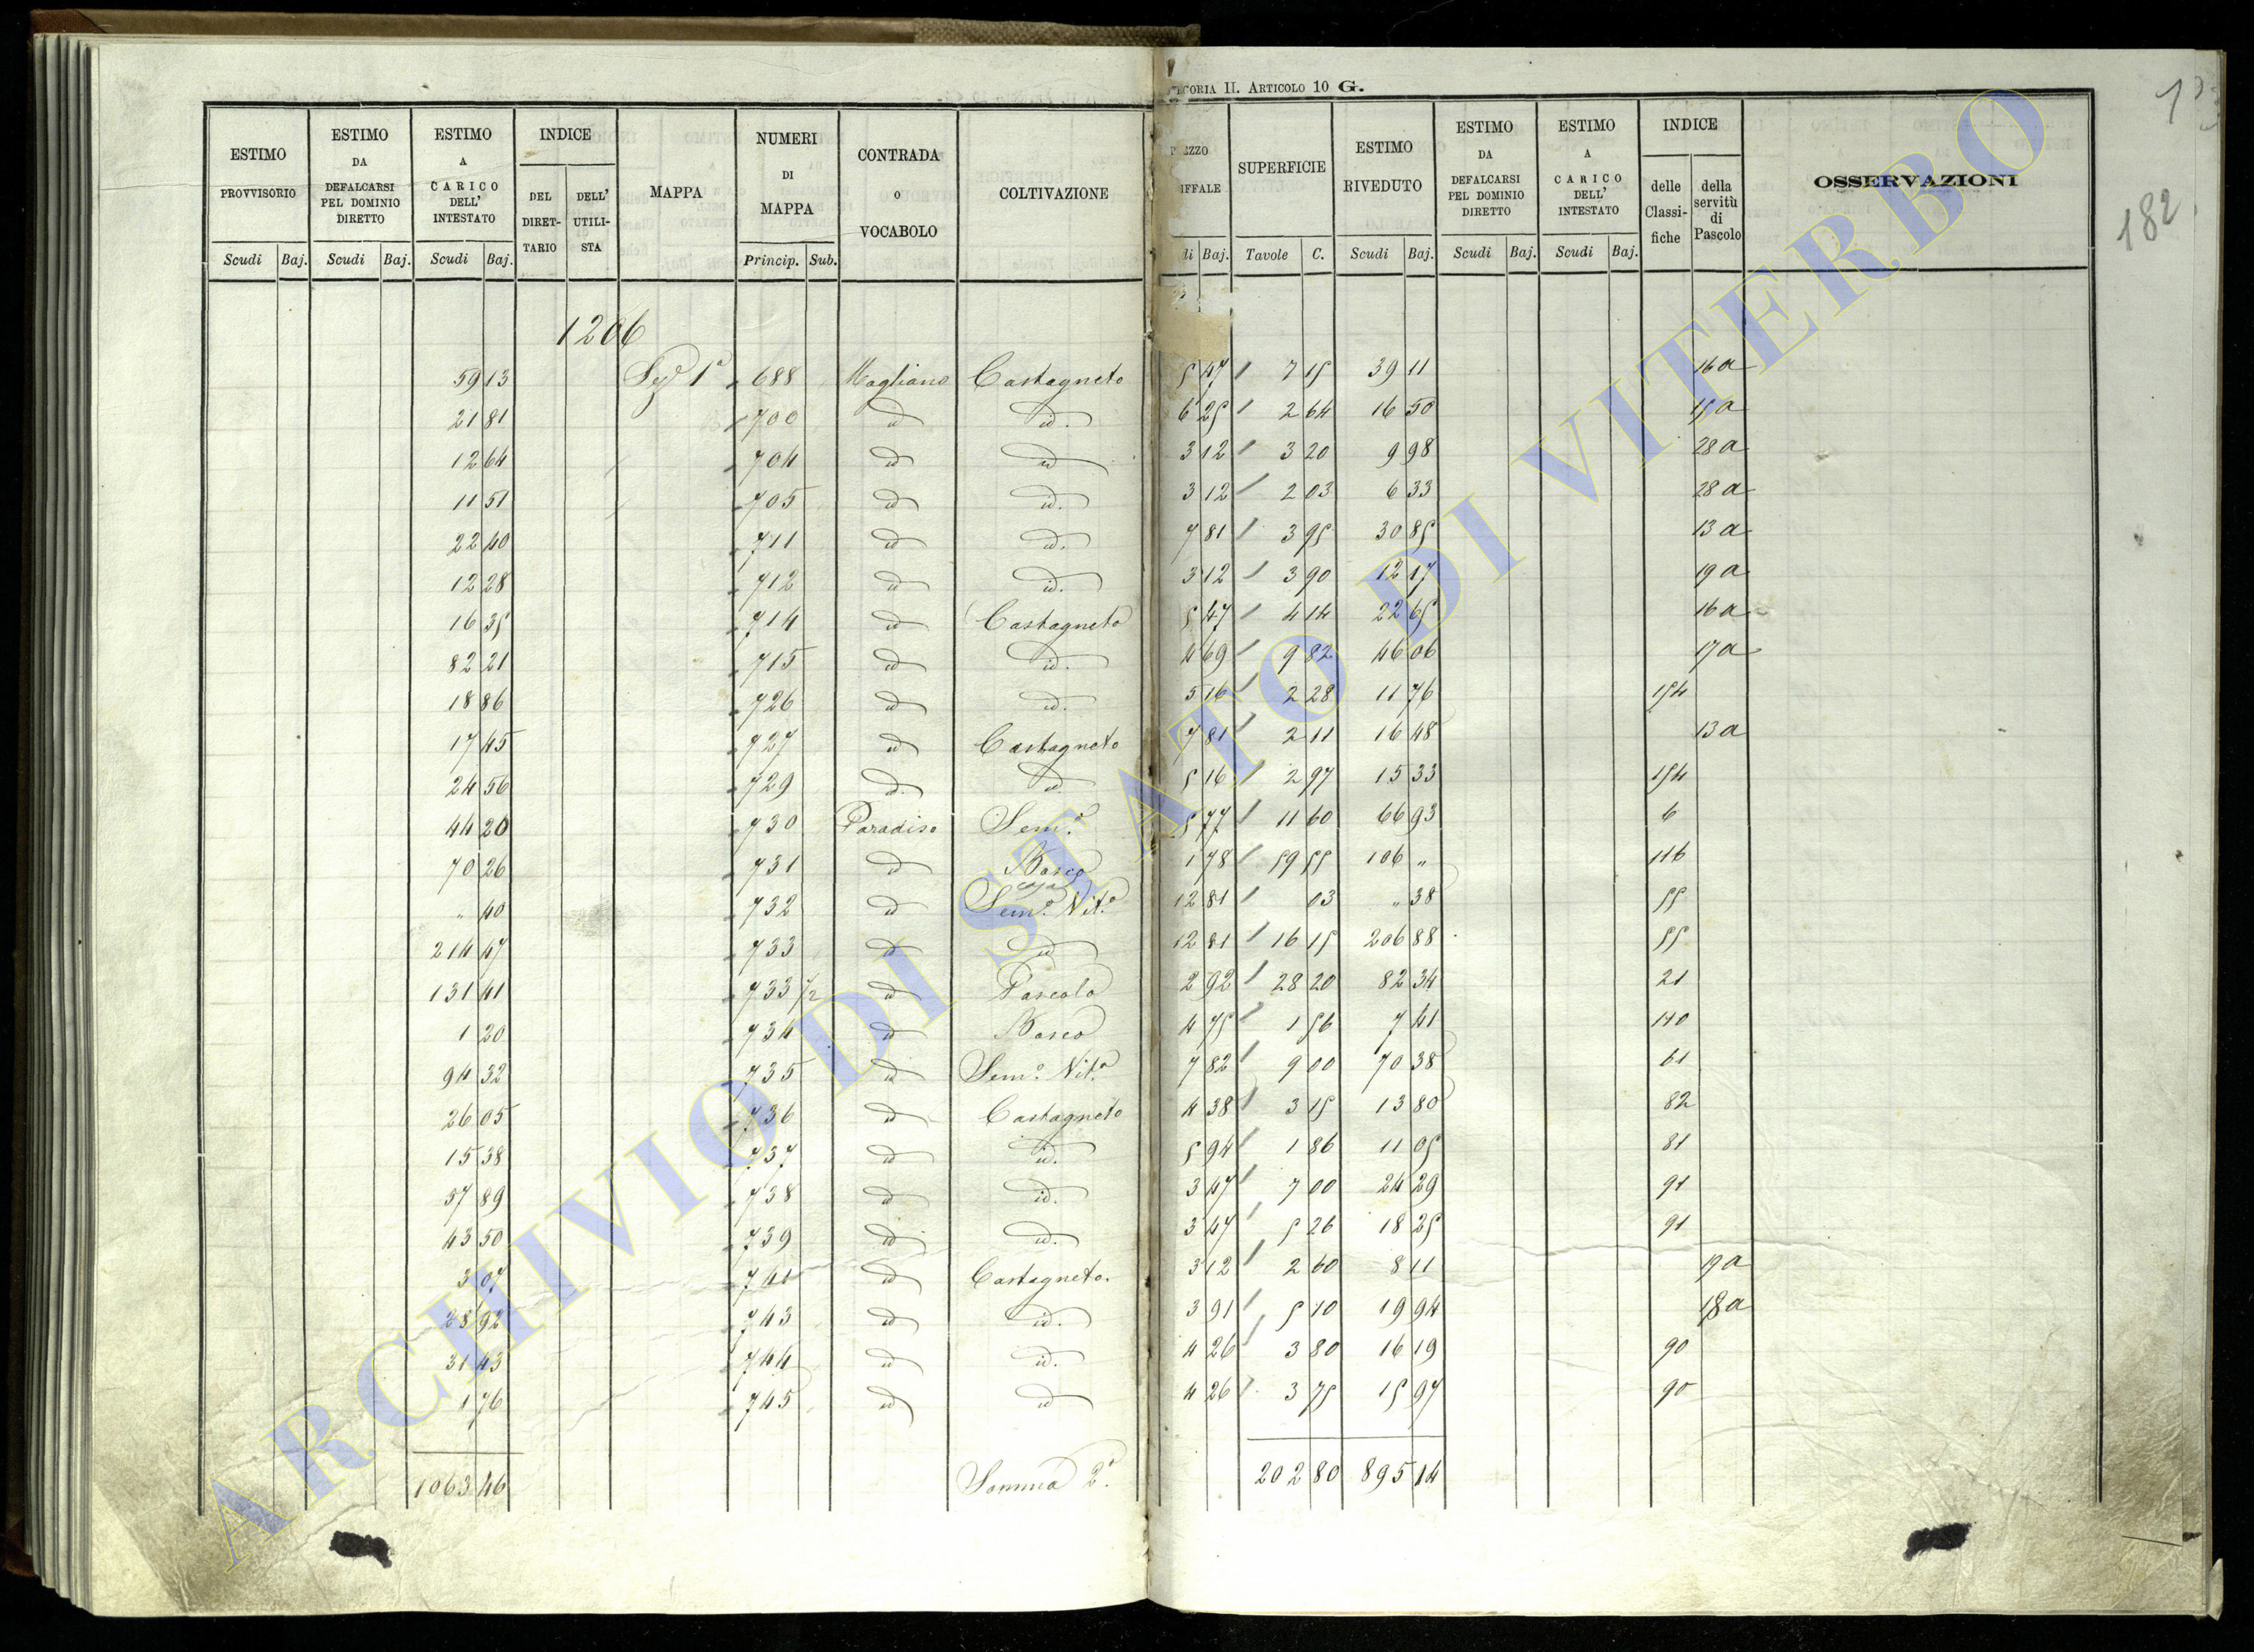 ...GORIA II. ARTICOLO 10 G.
182
ESTIMO PROVVISORIO | ESTIMO DA DEFALCARSI PEL DOMINIO DIRETTO | ESTIMO A CARICO DELL' INTESTATO | INDICE | MAPPA | NUMERI DI MAPPA | CONTRADA O VOCABOLO | COLTIVAZIONE | SUPERFICIE | ESTIMO RIVEDUTO | ESTIMO DA DEFALCARSI PEL DOMINIO DIRETTO | ESTIMO A CARICO DELL' INTESTATO | INDICE | OSSERVAZIONI
DEL DIRETTARIO | DELL' UTILISTA | delle Classifiche | della servitù di Pascolo
Scudi | Baj. | Scudi | Baj. | Scudi | Baj. | Princip. | Sub. | Baj. | Tavole | C. | Scudi | Baj. | Scudi | Baj. | Scudi | Baj.
1206
59 13 | Sez.e 1a | 688 | Magliano | Castagneto | 5 47 | 7 15 | 39 11 | 16 a
21 81 | 700 | id | id. | 6 25 | 2 64 | 16 50 | 15 a
12 64 | 704 | id | id | 3 12 | 3 20 | 9 98 | 28 a
11 51 | 705 | id | id. | 3 12 | 2 03 | 6 33 | 28 a
22 40 | 711 | id | id. | 7 81 | 3 95 | 30 85 | 13 a
12 28 | 712 | id | id. | 3 12 | 3 90 | 12 17 | 19 a
16 35 | 714 | id | Castagneto | 5 47 | 4 14 | 22 65 | 16 a
82 21 | 715 | id | id. | 4 69 | 9 82 | 46 06 | 17 a
18 86 | 726 | id | id. | 5 16 | 2 28 | 11 76 | 154
17 45 | 727 | id | Castagneto | 7 81 | 2 11 | 16 48 | 13 a
24 56 | 729 | id. | id | 5 16 | 2 97 | 15 33 | 154
44 20 | 730 | Paradiso | Sem.o | 5 77 | 11 60 | 66 93 | 6
70 26 | 731 | id | Bosco | 1 78 | 59 55 | 106 „ | 116
„ 40 | 732 | id | Sem.o Vit.o | 12 81 | 03 | „ 38 | 55
214 47 | 733 | id | id | 12 81 | 16 15 | 206 88 | 55
131 41 | 733 1/2 | id | Pascolo | 2 92 | 28 20 | 82 34 | 21
1 20 | 734 | id | Bosco | 4 75 | 1 56 | 7 41 | 110
94 32 | 735 | id | Sem.o Vit.o | 7 82 | 9 00 | 70 38 | 61
26 05 | 736 | id | Castagneto | 4 38 | 3 15 | 13 80 | 82
15 38 | 737 | id | id. | 5 94 | 1 86 | 11 05 | 81
57 89 | 738 | id | id. | 3 47 | 7 00 | 24 29 | 91
43 50 | 739 | id | id. | 3 47 | 5 26 | 18 25 | 91
3 07 | 741 | id | Castagneto. | 3 12 | 2 60 | 8 11 | 19 a
28 92 | 743 | id | id. | 3 91 | 5 10 | 19 94 | 18 a
31 43 | 744 | id | id. | 4 26 | 3 80 | 16 19 | 90
1 76 | 745 | id | id | 4 26 | 3 75 | 15 97 | 90
1063 46 | Somma 2a. | 202 80 | 895 14
ARCHIVIO DI STATO DI VITERBO